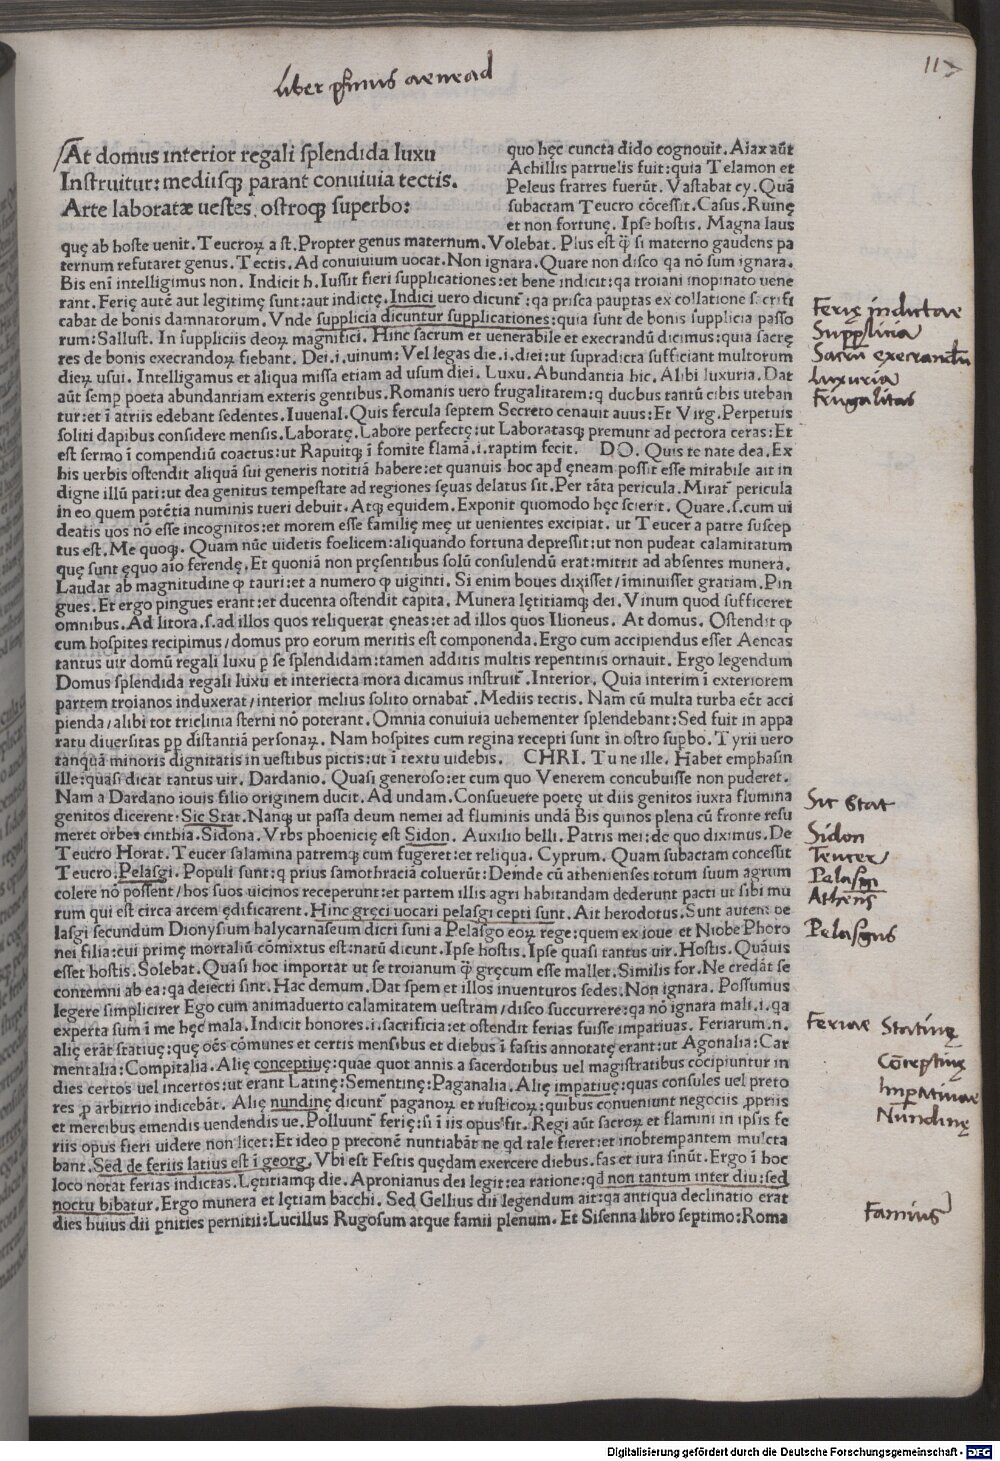 liber primus aeneid
117
At domus interior regali splendida luxu
Instruitur: mediisq; parant conuiuia tectis.
Arte laboratæ uestes, ostroq; superbo:
quo hęc cuncta dido cognouit. Aiax aūt
Achillis patruelis fuit: quia Telamon et
Peleus fratres fuerūt. Vastabat ey. Quā
subactam Teucro cōcessit. Casus. Ruinę
et non fortunę. Ipse hostis. Magna laus
quę ab hoste uenit. Teucroꝝ a st. Propter genus maternum. Volebat. Plus est q̄ si materno gaudens pa
ternum refutaret genus. Tectis. Ad conuiuium uocat. Non ignara. Quare non disco qa nō sum ignara.
Bis eni intelligimus non. Indicit h. Iussit fieri supplicationes: et bene indicit: qa troiani inopinato uene
rant. Ferię autē aut legitimę sunt: aut indictę. Indici uero dicunt̄: qa prisca pauptas ex collatione sacrifi
cabat de bonis damnatorum. Vnde supplicia dicuntur supplicationes: quia sunt de bonis supplicia passo
rum: Sallust. In suppliciis deoꝝ magnifici. Hinc sacrum et uenerabile et execrandū dicimus: quia sacrę
res de bonis execrandoꝝ fiebant. Dei. i. uinum: Vel legas die. i. diei: ut supradicta sufficiant multorum
dieꝝ usui. Intelligamus et aliqua missa etiam ad usum diei. Luxu. Abundantia hic. Alibi luxuria. Dat
aūt semp poeta abundantiam exteris gentibus. Romanis uero frugalitatem: q duobus tantū cibis uteban
tur: et ī atriis edebant sedentes. Iuuenal. Quis fercula septem Secreto cenauit auus: Et Virg. Perpetuis
soliti dapibus considere mensis. Laboratę. Labore perfectę: ut Laboratasq; premunt ad pectora ceras: Et
est sermo ī compendiū coactus: ut Rapuitq; ī fomite flamā. i. raptim fecit. DO. Quis te nate dea. Ex
his uerbis ostendit aliquā sui generis notitiā habere: et quanuis hoc apd ęneam possit esse mirabile ait in
digne illū pati: ut dea genitus tempestate ad regiones sęuas delatus sit. Per tāta pericula. Mirat̄ pericula
in eo quem potētia numinis tueri debuit. Atq; equidem. Exponit quomodo hęc scierit. Quare. s. cum ui
deatis uos nō esse incognitos: et morem esse familię meę ut uenientes excipiat. ut Teucer a patre suscep
tus est. Me quoq;. Quam nūc uidetis foelicem: aliquando fortuna depressit: ut non pudeat calamitatum
quę sunt ęquo aīo ferendę. Et quoniā non pręsentibus solū consulendū erat: mittit ad absentes munera.
Laudat ab magnitudine ꝙ tauri: et a numero ꝙ uiginti. Si enim boues dixisset/ iminuisset gratiam. Pin
gues. Et ergo pingues erant: et ducenta ostendit capita. Munera lętitiamq; dei. Vinum quod sufficeret
omnibus. Ad litora. s. ad illos quos reliquerat ęneas: et ad illos quos Ilioneus. At domus. Ostendit ꝙ
cum hospites recipimus/ domus pro eorum meritis est componenda. Ergo cum accipiendus esset Aeneas
tantus uir domū regali luxu p se splendidam: tamen additis multis repentinis ornauit. Ergo legendum
Domus splendida regali luxu et interiecta mora dicamus instruit̄. Interior. Quia interim ī exteriorem
partem troianos induxerat/ interior melius solito ornabat̄. Mediis tectis. Nam cū multa turba eēt acci
pienda/ alibi tot triclinia sterni nō poterant. Omnia conuiuia uehementer splendebant: Sed fuit in appa
ratu diuersitas pp distantiā personaꝝ. Nam hospites cum regina recepti sunt in ostro supbo. Tyrii uero
tanquā minoris dignitatis in uestibus pictis: ut ī textu uidebis. CHRI. Tu ne ille. Habet emphasin
ille: quasi dicat tantus uir. Dardanio. Quasi generoso: et cum quo Venerem concubuisse non puderet.
Nam a Dardano iouis filio originem ducit. Ad undam. Consueuere poetę ut diis genitos iuxta flumina
genitos dicerent. Sic Stat. Nanq; ut passa deum nemei ad fluminis undā Bis quinos plena cū fronte resu
meret orbes cinthia. Sidona. Vrbs phoenicię est Sidon. Auxilio belli. Patris mei: de quo diximus. De
Teucro Horat. Teucer salamina patremq; cum fugeret: et reliqua. Cyprum. Quam subactam concessit
Teucro. Pelasgi. Populi sunt: q prius samothraciā coluerūt: Deinde cū athenienses totum suum agrum
colere nō possent/ hos suos uicinos receperunt: et partem illis agri habitandam dederunt pacti ut sibi mu
rum qui est circa arcem ędificarent. Hinc gręci uocari pelasgi cepti sunt. Ait herodotus. Sunt autem pe
lasgi secundum Dionysium halycarnaseum dicti sunt a Pelasgo eoꝝ rege: quem ex ioue et Niobe Phoro
nei filia: cui prime mortaliū cōmixtus est: natū dicunt. Ipse hostis. Ipse quasi tantus uir. Hostis. Quāuis
esset hostis. Solebat. Quasi hoc importat ut se troianum q̄ gręcum esse mallet. Similis for. Ne credāt se
contemni ab ea: qa deiecti sint. Hac demum. Dat spem et illos inuenturos sedes. Non ignara. Possumus
legere simpliciter Ego cum animaduerto calamitatem uestram/ disco succurrere: qa nō ignara mali. i. qa
experta sum ī me hęc mala. Indicit honores. i. sacrificia: et ostendit ferias fuisse impatiuas. Feriarum. n.
alię erāt statiuę: quę oēs cōmunes et certis mensibus et diebus ī fastis annotatę erant: ut Agonalia: Car
mentalia: Compitalia. Alię conceptiuę: quae quot annis a sacerdotibus uel magistratibus cōcipiuntur in
dies certos uel incertos: ut erant Latinę: Sementinę: Paganalia. Alię impatiuę: quas consules uel preto
res p arbitrio indicebāt. Alię nundinę dicunt̄ paganoꝝ et rusticoꝝ: quibus conueniunt negociis ppriis
et mercibus emendis uendendis ue. Polluunt̄ ferię: si ī iis opus fit. Regi aūt sacroꝝ et flamini in ipsis fe
riis opus fieri uidere non licet: Et ideo p preconē nuntiabāt ne qd tale fieret: et inobtempantem mulcta
bant. Sed de feriis latius est ī georg. Vbi est Festis quędam exercere diebus. fas et iura sinūt. Ergo ī hoc
loco notat ferias indictas. Lętitiamq; die. Apronianus dei legit: ea ratione: qd non tantum inter diu: sed
noctu bibatur. Ergo munera et lętiam bacchi. Sed Gellius dii legendum ait: qa antiqua declinatio erat
dies huius dii pnities pernitii: Lucillus Rugosum atque famii plenum. Et Sisenna libro septimo: Roma
Ferię indictae
Supplitia
Sacrū execrandū
Luxuria
Frugalitas
Sic Stat
Sidon
Teucer
Palasgi
Athens
Pelasgus
Feriae Statiuę
Cōceptiuę
Imperatiuae
Nundinę
Famius
Digitalisierung gefördert durch die Deutsche Forschungsgemeinschaft - DFG